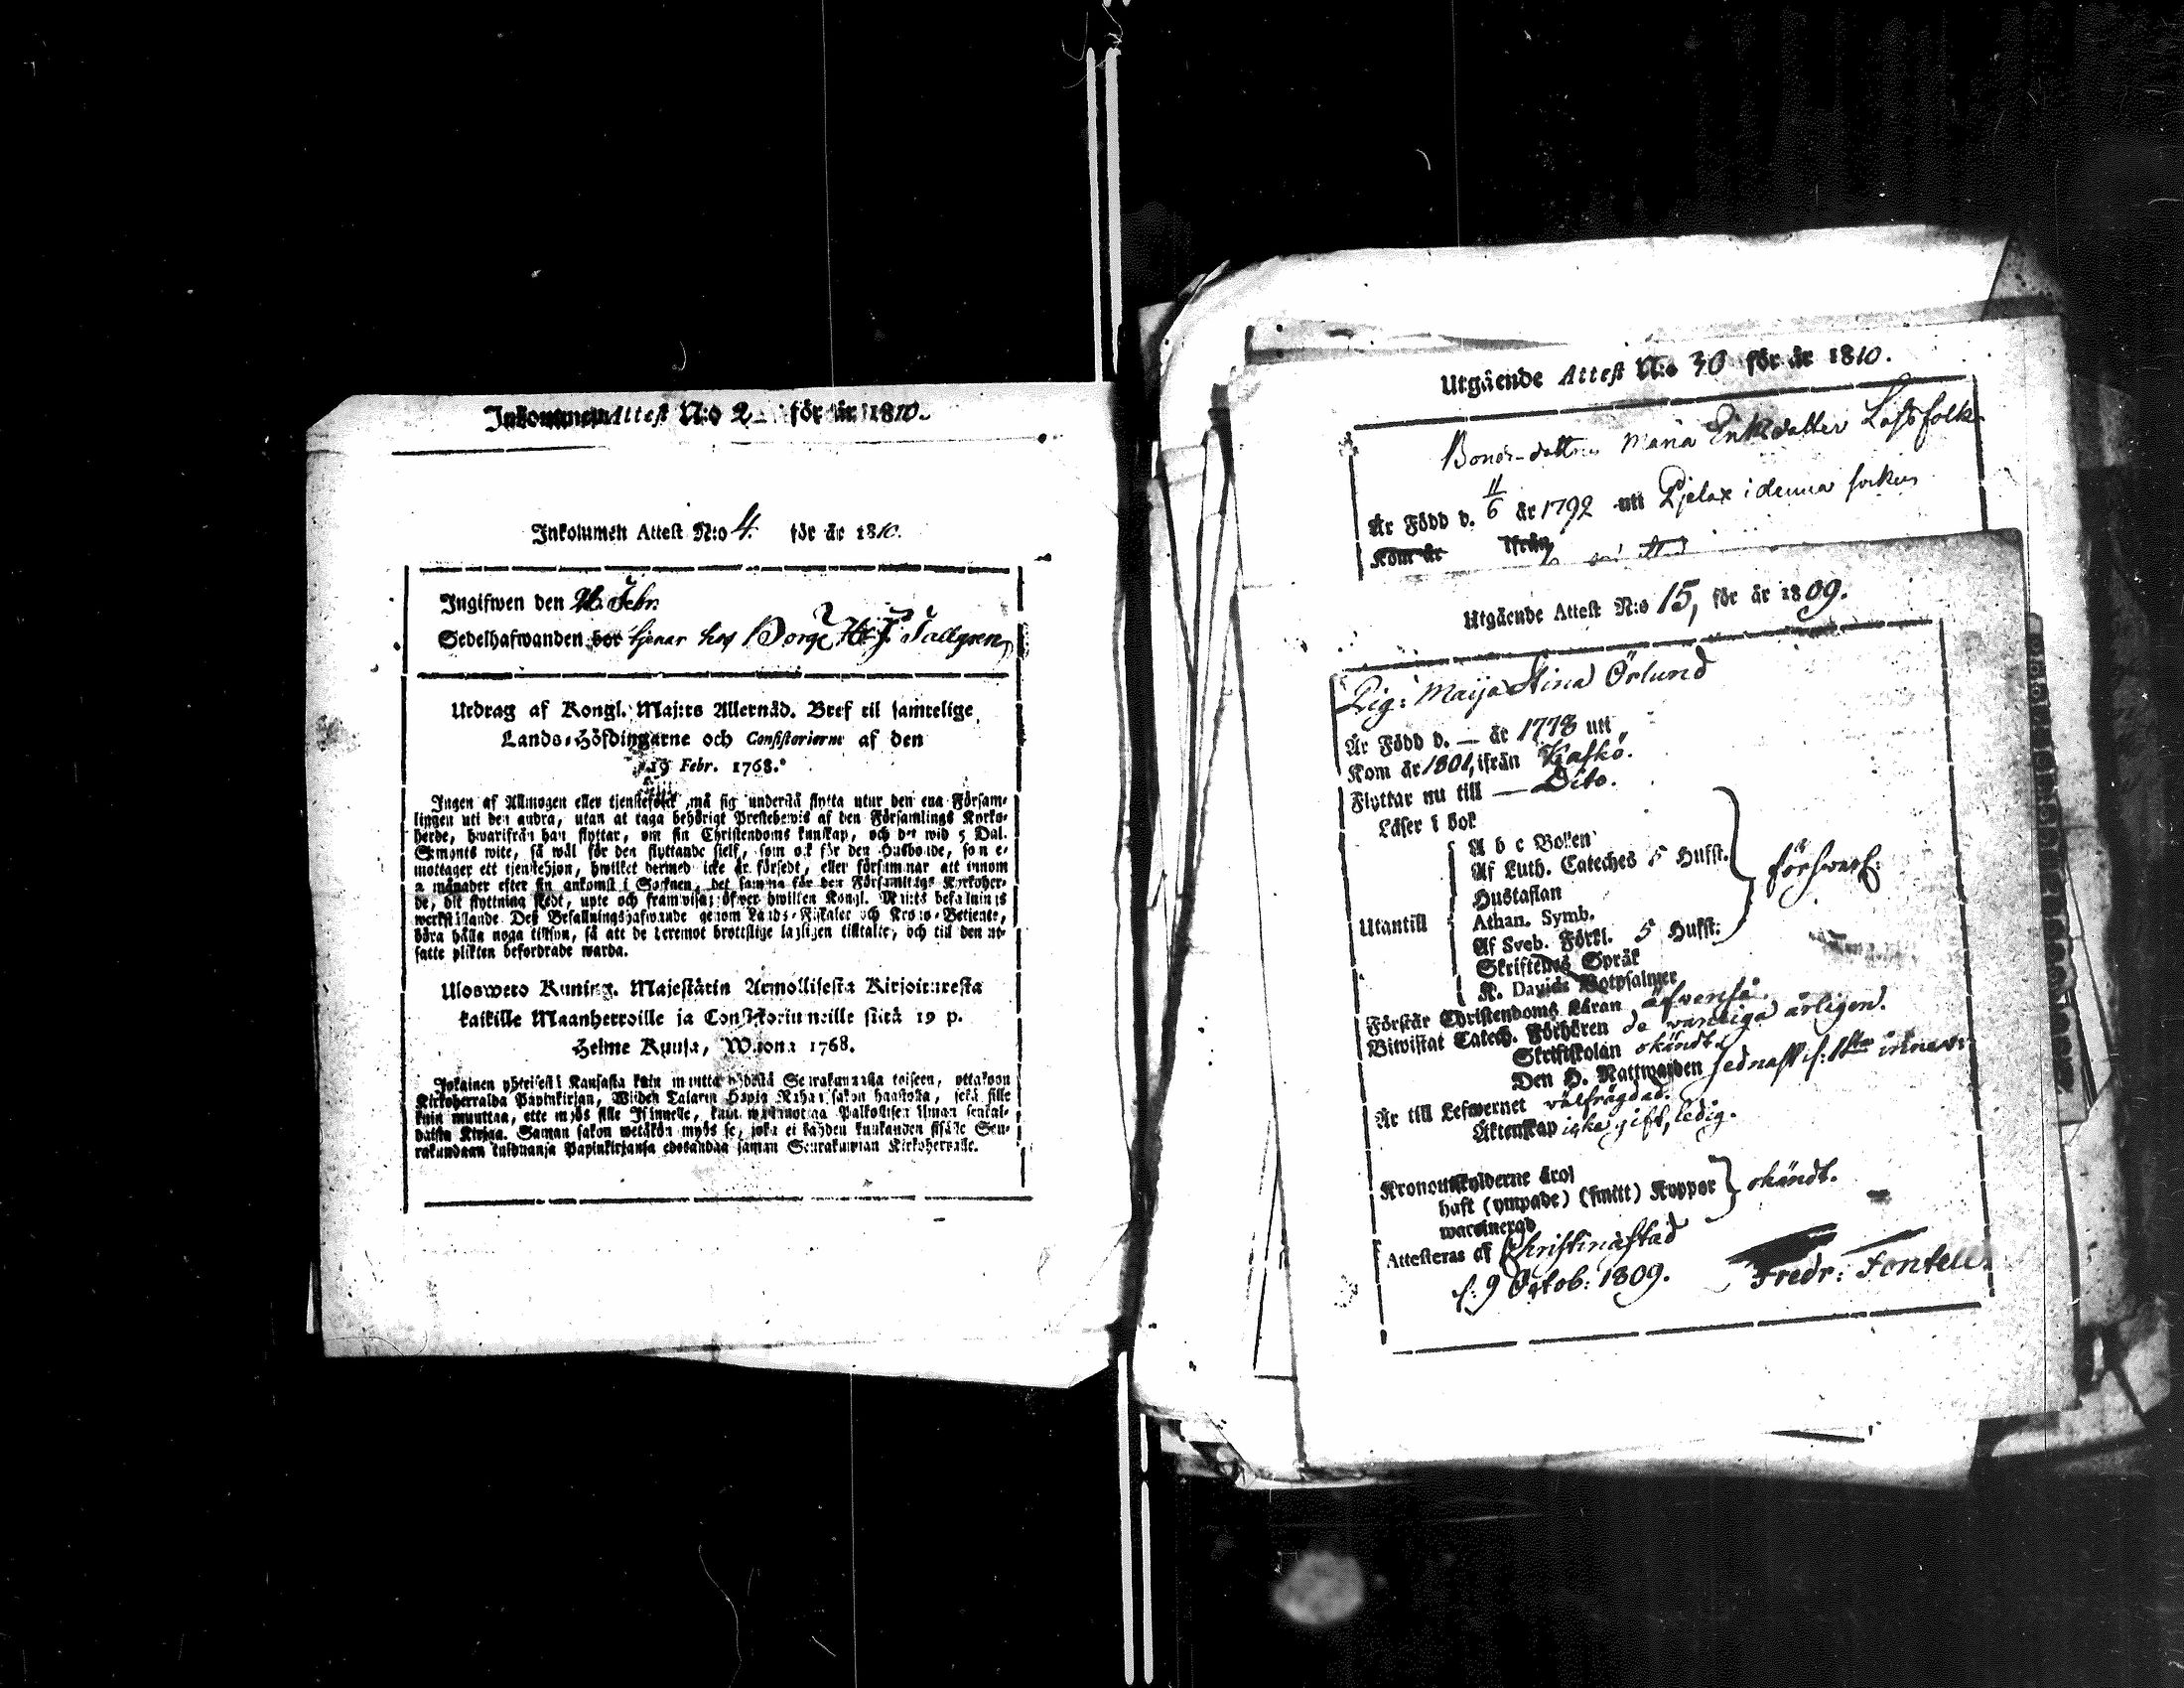 Inkommen Attest N:o 2 för år 1810.
Inkommen Attest N:o 4. för år 1810.
Ingifwen den Febr.
Sedelhafwanden bor tjenar hos Borg. Tallgren
Utdrag af Kongl. Maj:ts Allernåd. Bref til samtelige
Lands-Höfdingarne och Consistorierne af den
19 Febr. 1768.
Ingen af Allmogen eller tjenstefolck må sig understå flytta utur den ena Försam-
lingen uti den andra, utan at taga behörigt Prestebewis af den Församlings Kyrko-
herde, hwarifrån han flyttar, om sin Christendoms kunskap, och det wid 5 Dal.
S:mynts wite, så wäl för den flyttande sielf, som ock för den Husbonde, som e-
mottager ett tjenstehjon, hwilket dermed icke är försedt, eller försummar att innom
2 månader efter sin ankomst i Soknen, det samma för den Församlings Kyrkoher-
de, dit flyttning skedt, upte och framwisa; öfwer hwilken Kongl. Maj:ts befallnings
werkställande Des Befallningshafwande genom Lands-Fiskaler och Krono-Betiente,
böra hålla noga tilsyn, så att de deremot brottslige lagligen tilltalte, och till den ut-
satte plikten befordrade warda.
Ulosweto Kuning. Majestätin Armollisesta Kirjoituxesta
kaikille Maanherroille ja Consistoriumeille siitä 19 p.
Helme Kuusa, Wuonna 1768.
Jokainen yhteisestä Kansasta kuin muutta yhdestä Seurakunnasta toiseen, ottakoon
Kirkoherralda Papinkirjan, Wijden Talarin Hopia Rahan sakon haastolla, sekä sille
kuin muuttaa, ette myös sille Isännelle, kuin wastanottaa Palkollisen ilman senkal-
daista Kirjaa. Saman sakon wetäkön myös se, joka ei kahden kuukauden sisälle Seu-
rakundaan tulduansa Papinkirjansa edesandaa saman Seurakunnan Kirkoherralle.
Utgående Attest N:o 30 för år 1810.
Bonde-dottren Maria Eriksdotter Lassfolk
Är Född d. 11/6 år 1792 uti Pjelax i denna socken
Kom år ifrån
Utgående Attest N:o 15, för år 1809.
Pig: Maija Stina Örlund
Är Född d. — år 1778 uti
Kom år 1801, ifrån Kaskö.
Flyttar nu till — Dito.
Läser i bok
A b c Boken
Af Luth. Cateches 5 Hufst.
Hustaflan
försvarl:
Utantill
Athan. Symb.
Af Sveb. Förkl. 5 Hufst:
Skriftenes Språk
K. Davids Botpsalmer
Förstår Christendoms Läran äfvenså
Biwistat Catech. Förhören de vanliga årligen.
Skriftskolan okändt.
Den H. Nattwarden sednast d: 1sta
Är till Lefwernet välfrägdad.
Äktenskap icke gift, ledig.
Kronoutskylderne äro
haft (ympade) (smitt) Koppor okändt.
Attesteras af Christinæstad
d: 9 Octob: 1809.
Fredr: Fontell.